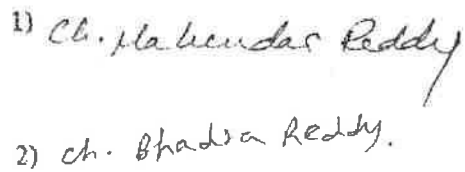 1) Ch. Mahendar Reddy
2) Ch. Bhadra Reddy.